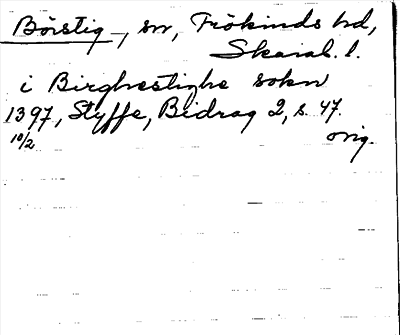 Börstig, sn, Frökinds hd,
Skarab. l.
i Birghestighe sokn
1397, Styffe, Bidrag 2, s. 47.
10/2 orig.